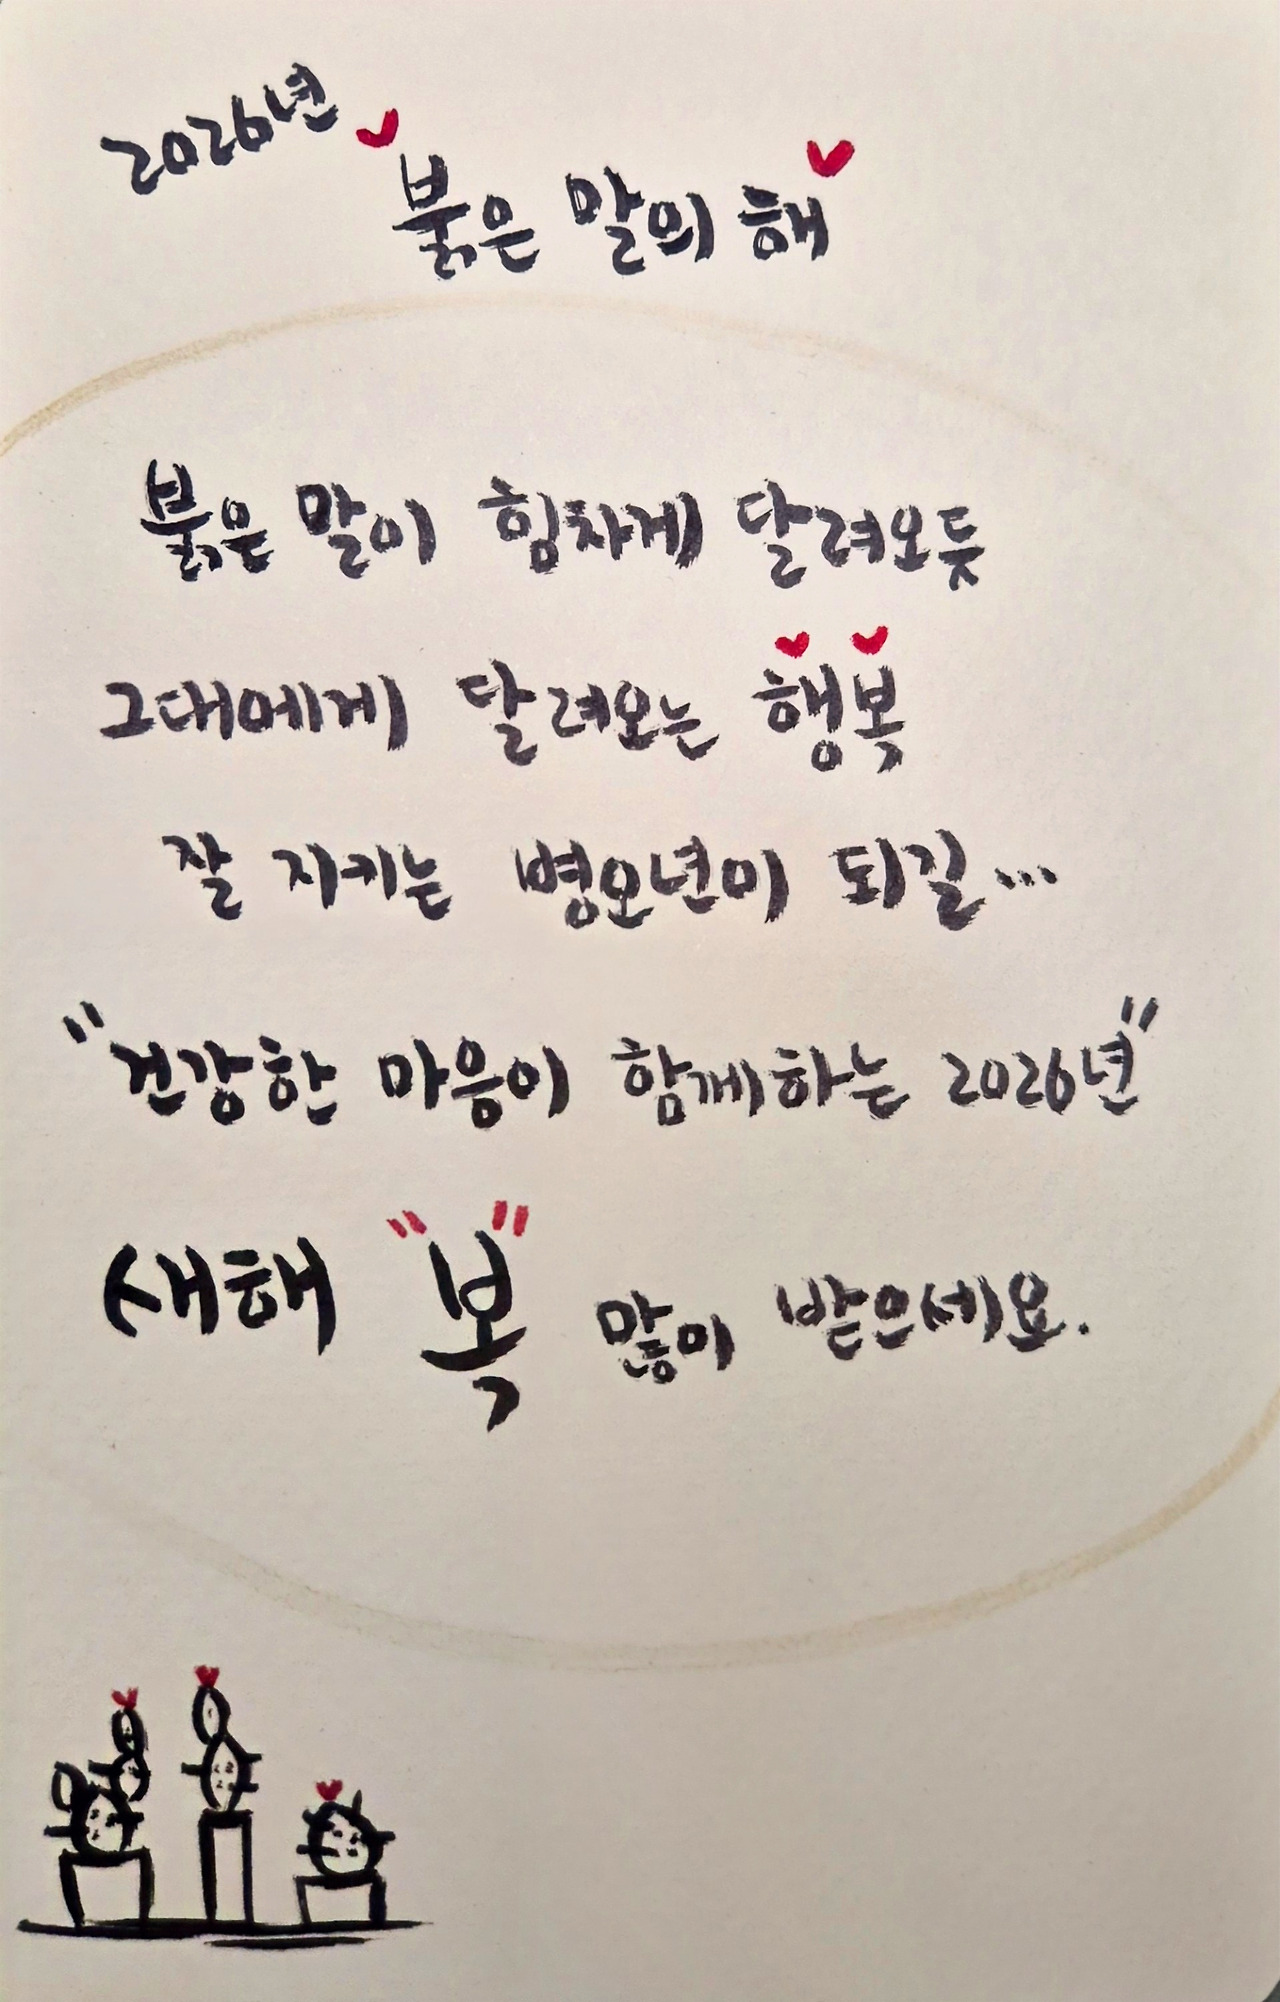 2026년
붉은 말의 해
붉은 말이 힘차게 달려오듯
그대에게 달려오는 행복
잘 지키는 병오년이 되길...
"건강한 마음이 함께하는 2026년"
새해 "복" 많이 받으세요.